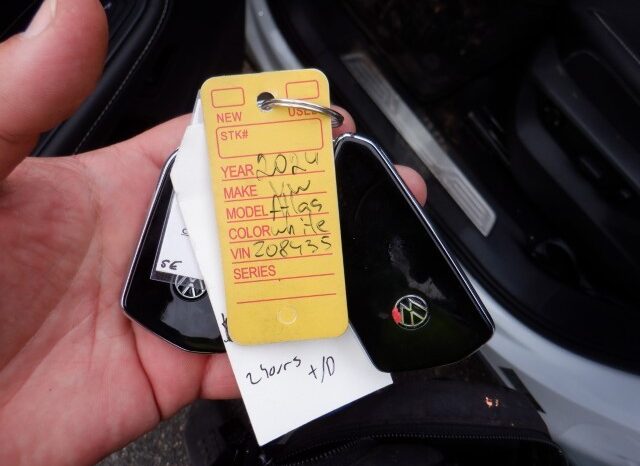 NEW USED
STK#
YEAR 2024
MAKE VW
MODEL Atlas
COLOR white
VIN 208435
SERIES
SE
2 hours +/0